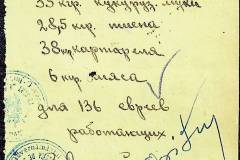 35 кгр. кукуруз. муки
28,5 кгр. пшена
38 кгр картофеля
6 кгр. мяса
для 136 евреев
работающих